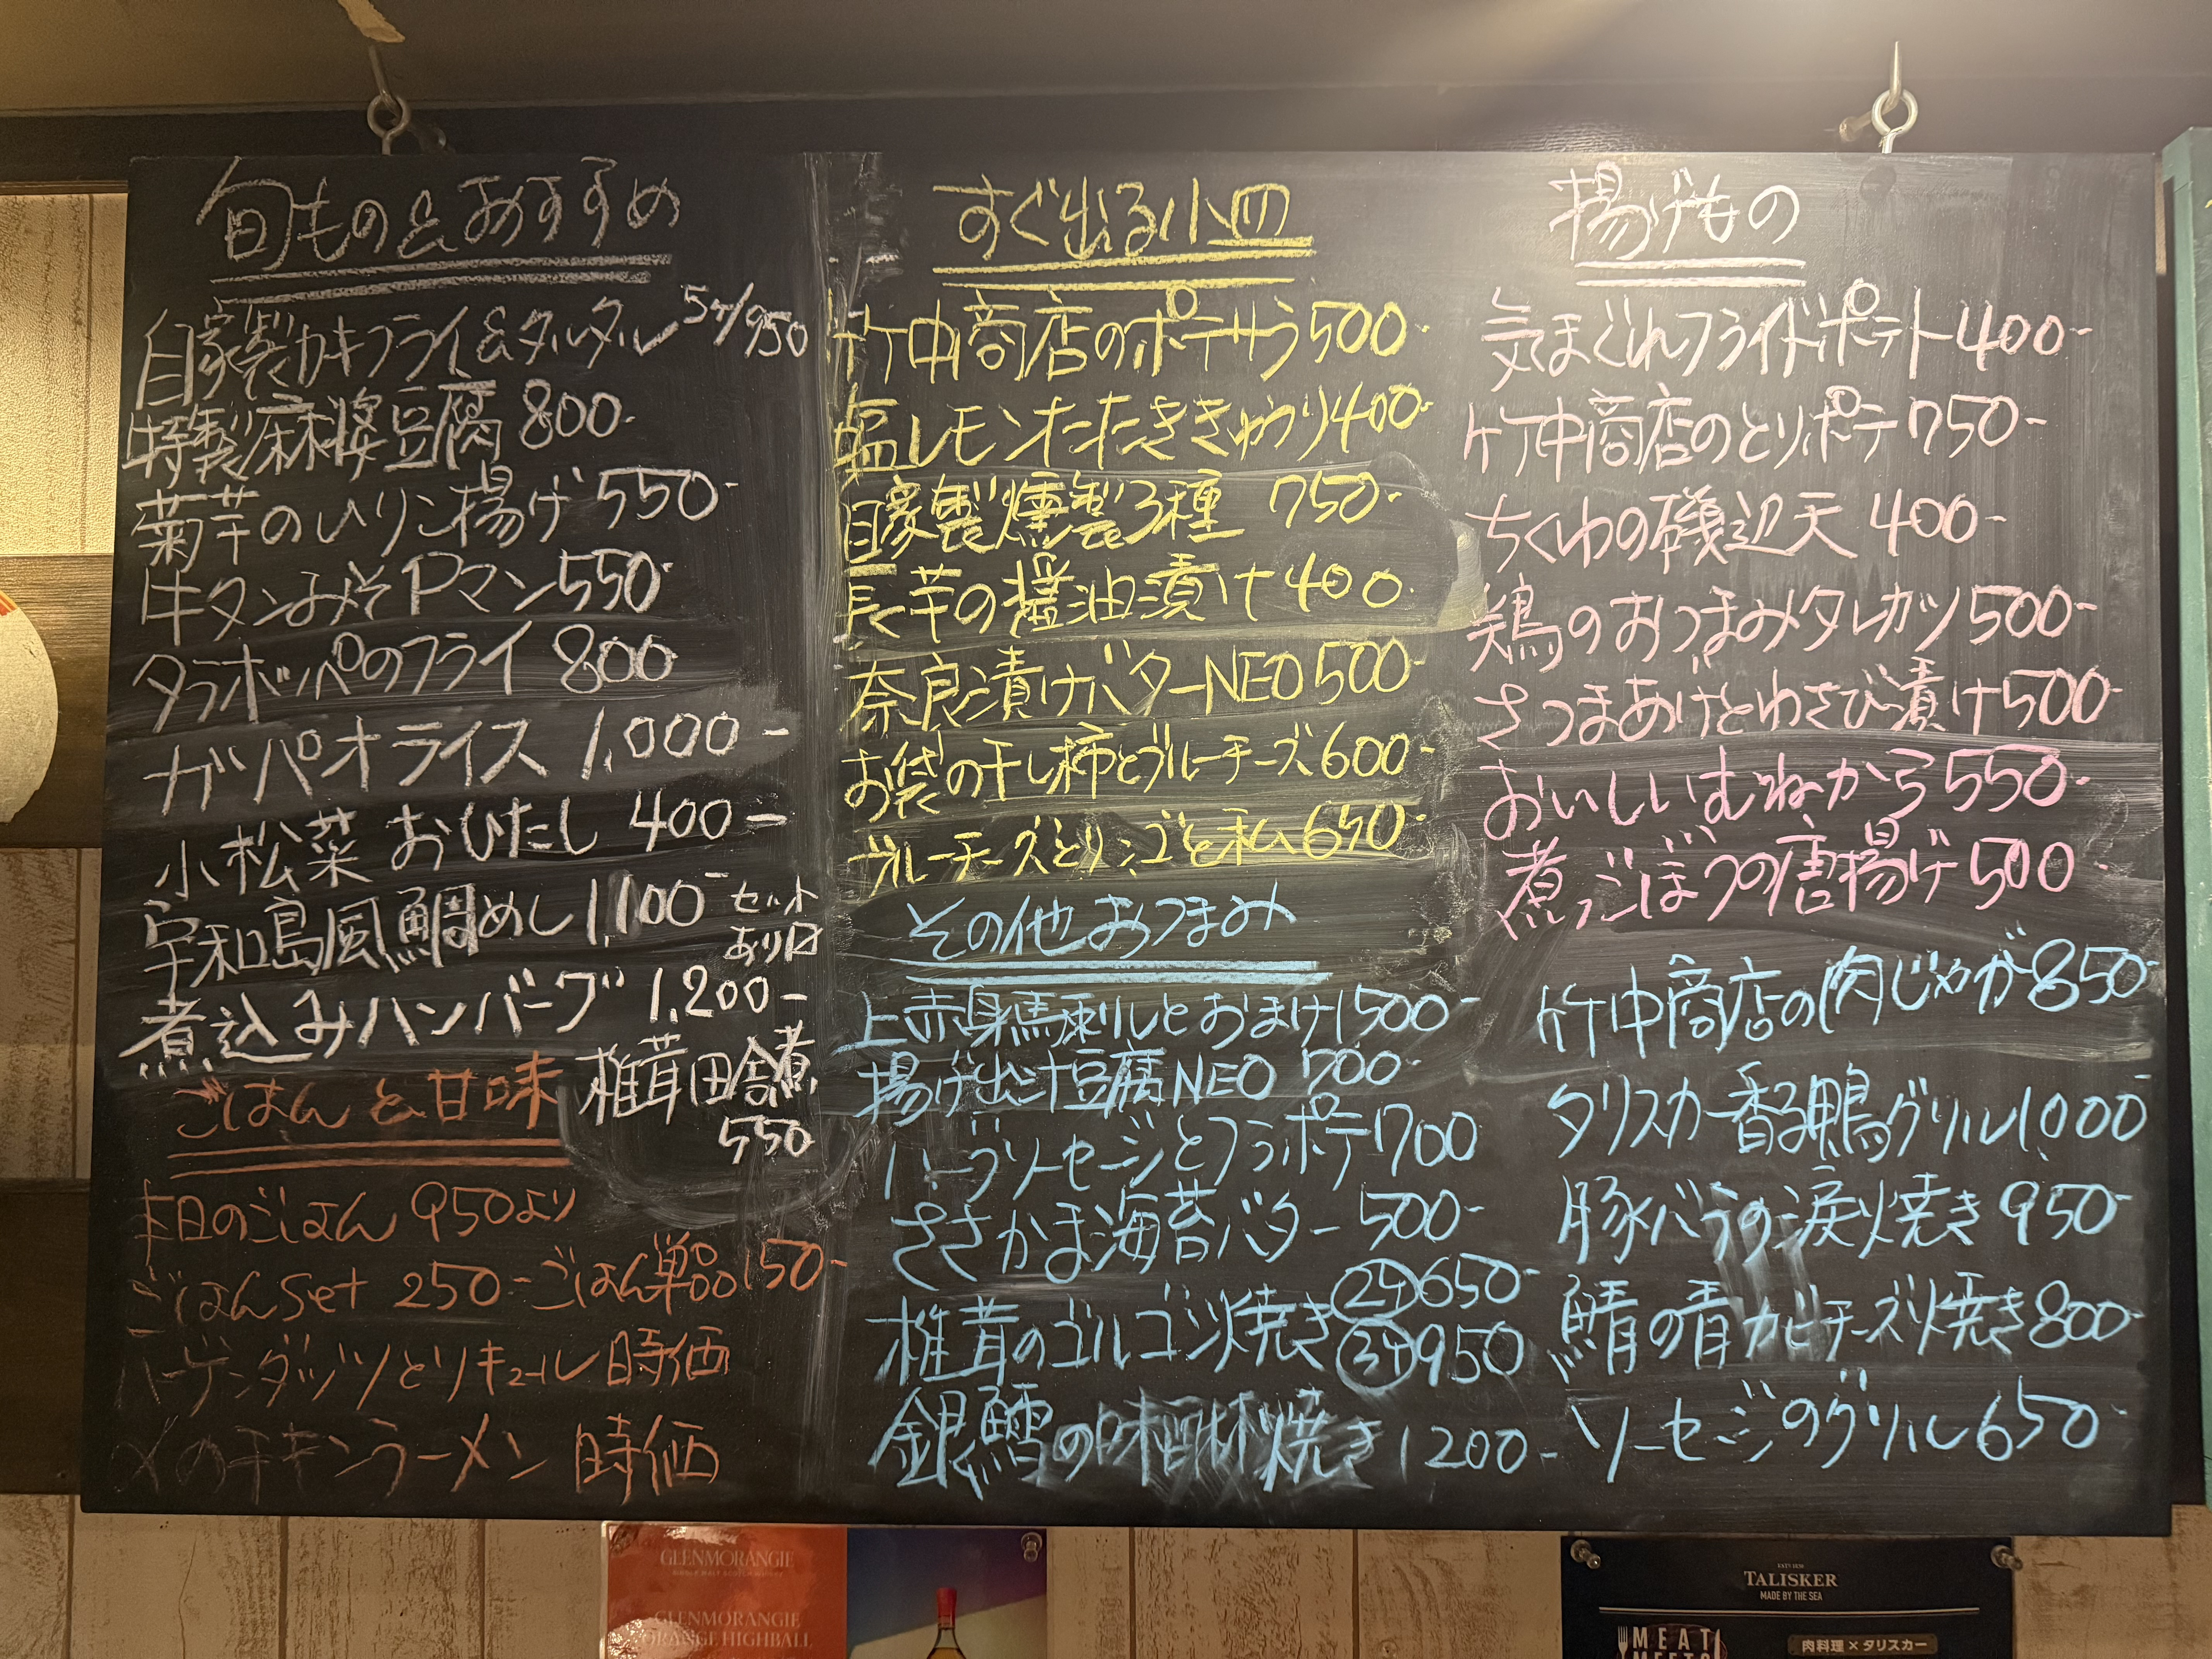 旬もの&おすすめ
自家製カキフライ&タルタル 5ヶ/950
特製麻婆豆腐 800-
菊芋のひりこ揚げ 550-
牛タンみそPマン 550-
タラボッパのフライ 800
ガパオライス 1,000-
小松菜 おひたし 400-
宇和島風鯛めし 1,100- セット
あり〼
煮込みハンバーグ 1,200-
椎茸田舎煮
550
ごはんと甘味
本日のごはん 950より
ごはんset 250- ごはん単品150-
ハーゲンダッツとリキュール 時価
〆のチキンラーメン 時価
すぐ出る小皿
竹中商店のポテサラ 500-
塩レモンたたききゅうり 400-
自家製燻製3種 750-
長芋の醤油漬け 400-
奈良漬けバターNEO 500-
お袋の干し柿とブルーチーズ 600-
ブルーチーズとリンゴと私 650-
その他おつまみ
上赤身馬刺しとおまけ 1500-
揚げ出汁豆腐NEO 700-
ハーブソーセージとフラポテ 700
ささかま海苔バター 500-
椎茸のゴルゴンゾ焼き ②ヶ650-
③ヶ950
銀鱈の味醂焼き 1200-
揚げもの
気まぐれフライドポテト 400-
竹中商店のとりポテ 750-
ちくわの磯辺天 400-
鶏のおつまみタレカツ 500-
さつまあげとわさび漬け 500-
おいしいむねから 550-
煮ごぼうの唐揚げ 500
竹中商店の肉じゃが 850-
タリスカー香る鴨グリル 1,000-
豚バラの涙焼き 950-
鯖の青カビチーズ焼き 800-
ソーセージのグリル 650-
GLENMORANGIE
GLENMORANGIE
ORANGE HIGHBALL
TALISKER
MADE BY THE SEA
MEAT
MEETS
肉料理×タリスカー